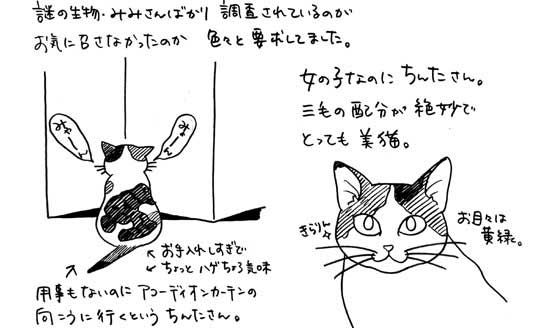 謎の生物・みみさんばかり 調査されているのが
お気に召さなかったのか 色々と要求してました。
みゃーん
みゃーん
お手入れしすぎで
ちょっとハゲちょろ気味
用事もないのに アコーディオンカーテンの
向こうに行くという ちんたさん。
女の子なのに ちんたさん。
三毛の配分が 絶妙で
とっても 美猫。
きらりん
お目々は
黄緑。